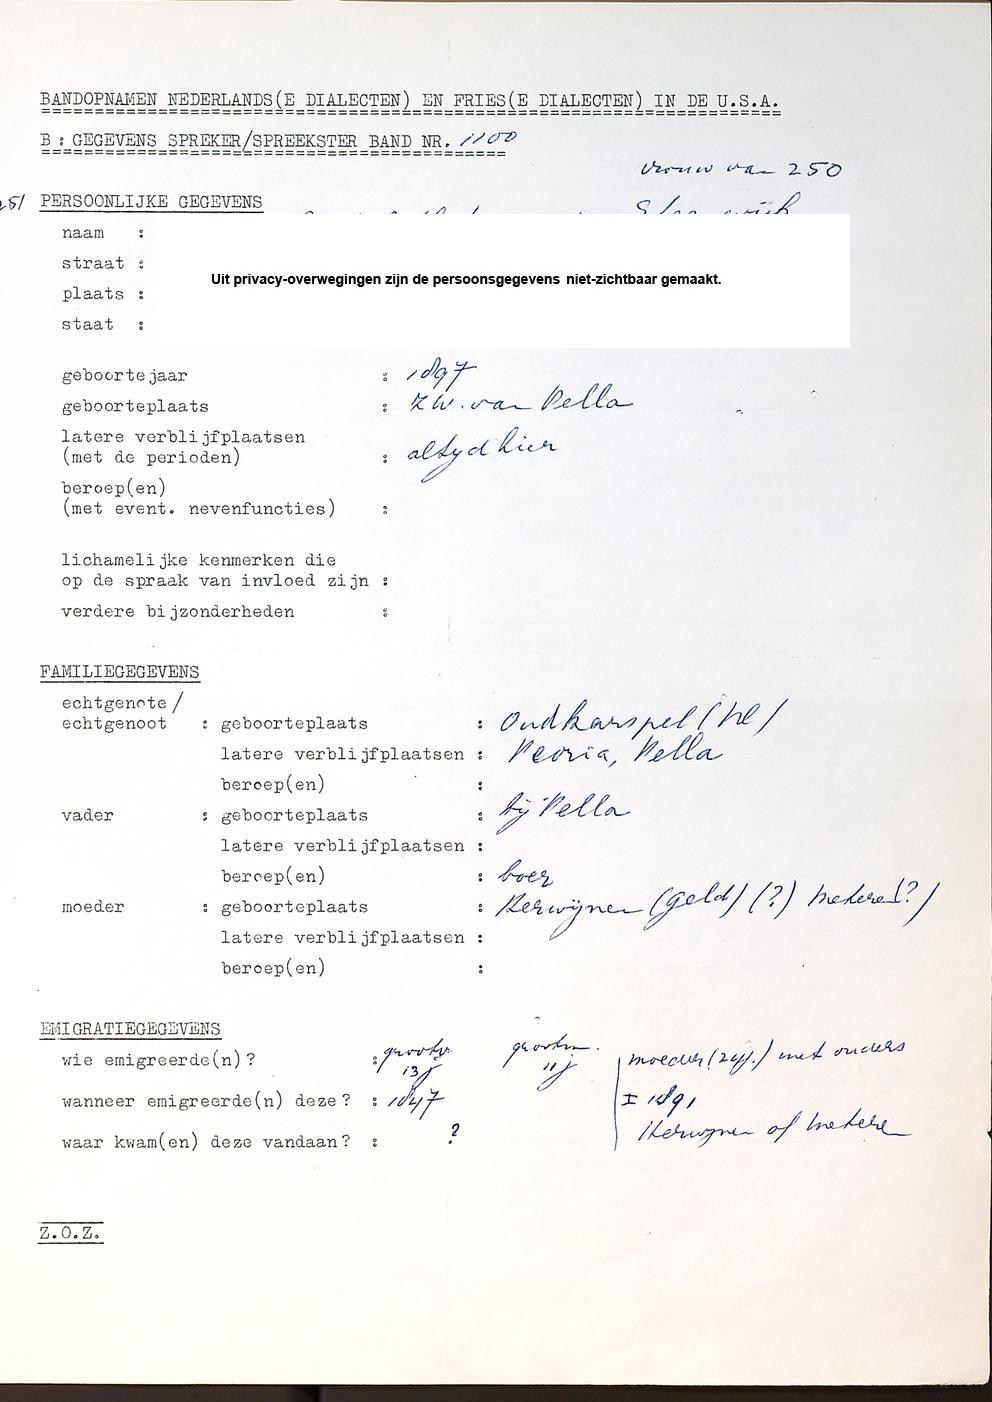 BANDOPNAMEN NEDERLANDS(E DIALECTEN) EN FRIES(E DIALECTEN) IN DE U.S.A.
B : GEGEVENS SPREKER/SPREEKSTER BAND NR. 1100
vrouw van 250
251 PERSOONLIJKE GEGEVENS
naam :
straat :
plaats :
staat :
Uit privacy-overwegingen zijn de persoonsgegevens niet-zichtbaar gemaakt.
geboortejaar : 1897
geboorteplaats : ZW. van Pella
latere verblijfplaatsen
(met de perioden) : altyd hier
beroep(en)
(met event. nevenfuncties) :
lichamelijke kenmerken die
op de spraak van invloed zijn :
verdere bijzonderheden :
FAMILIEGEGEVENS
echtgenote/
echtgenoot : geboorteplaats : Oudkarspel (NH)
latere verblijfplaatsen : Peoria, Pella
beroep(en) :
vader : geboorteplaats : bij Pella
latere verblijfplaatsen :
beroep(en) : boer
moeder : geboorteplaats : Herwijnen (Geld) (?) Meteren(?)
latere verblijfplaatsen :
beroep(en) :
EMIGRATIEGEGEVENS
wie emigreerde(n) ? : grootv. 13j grootm. 11j moeder ( ) met ouders
wanneer emigreerde(n) deze ? : 1847 ± 1891
waar kwam(en) deze vandaan ? : ? Herwynen of Meteren
Z.O.Z.